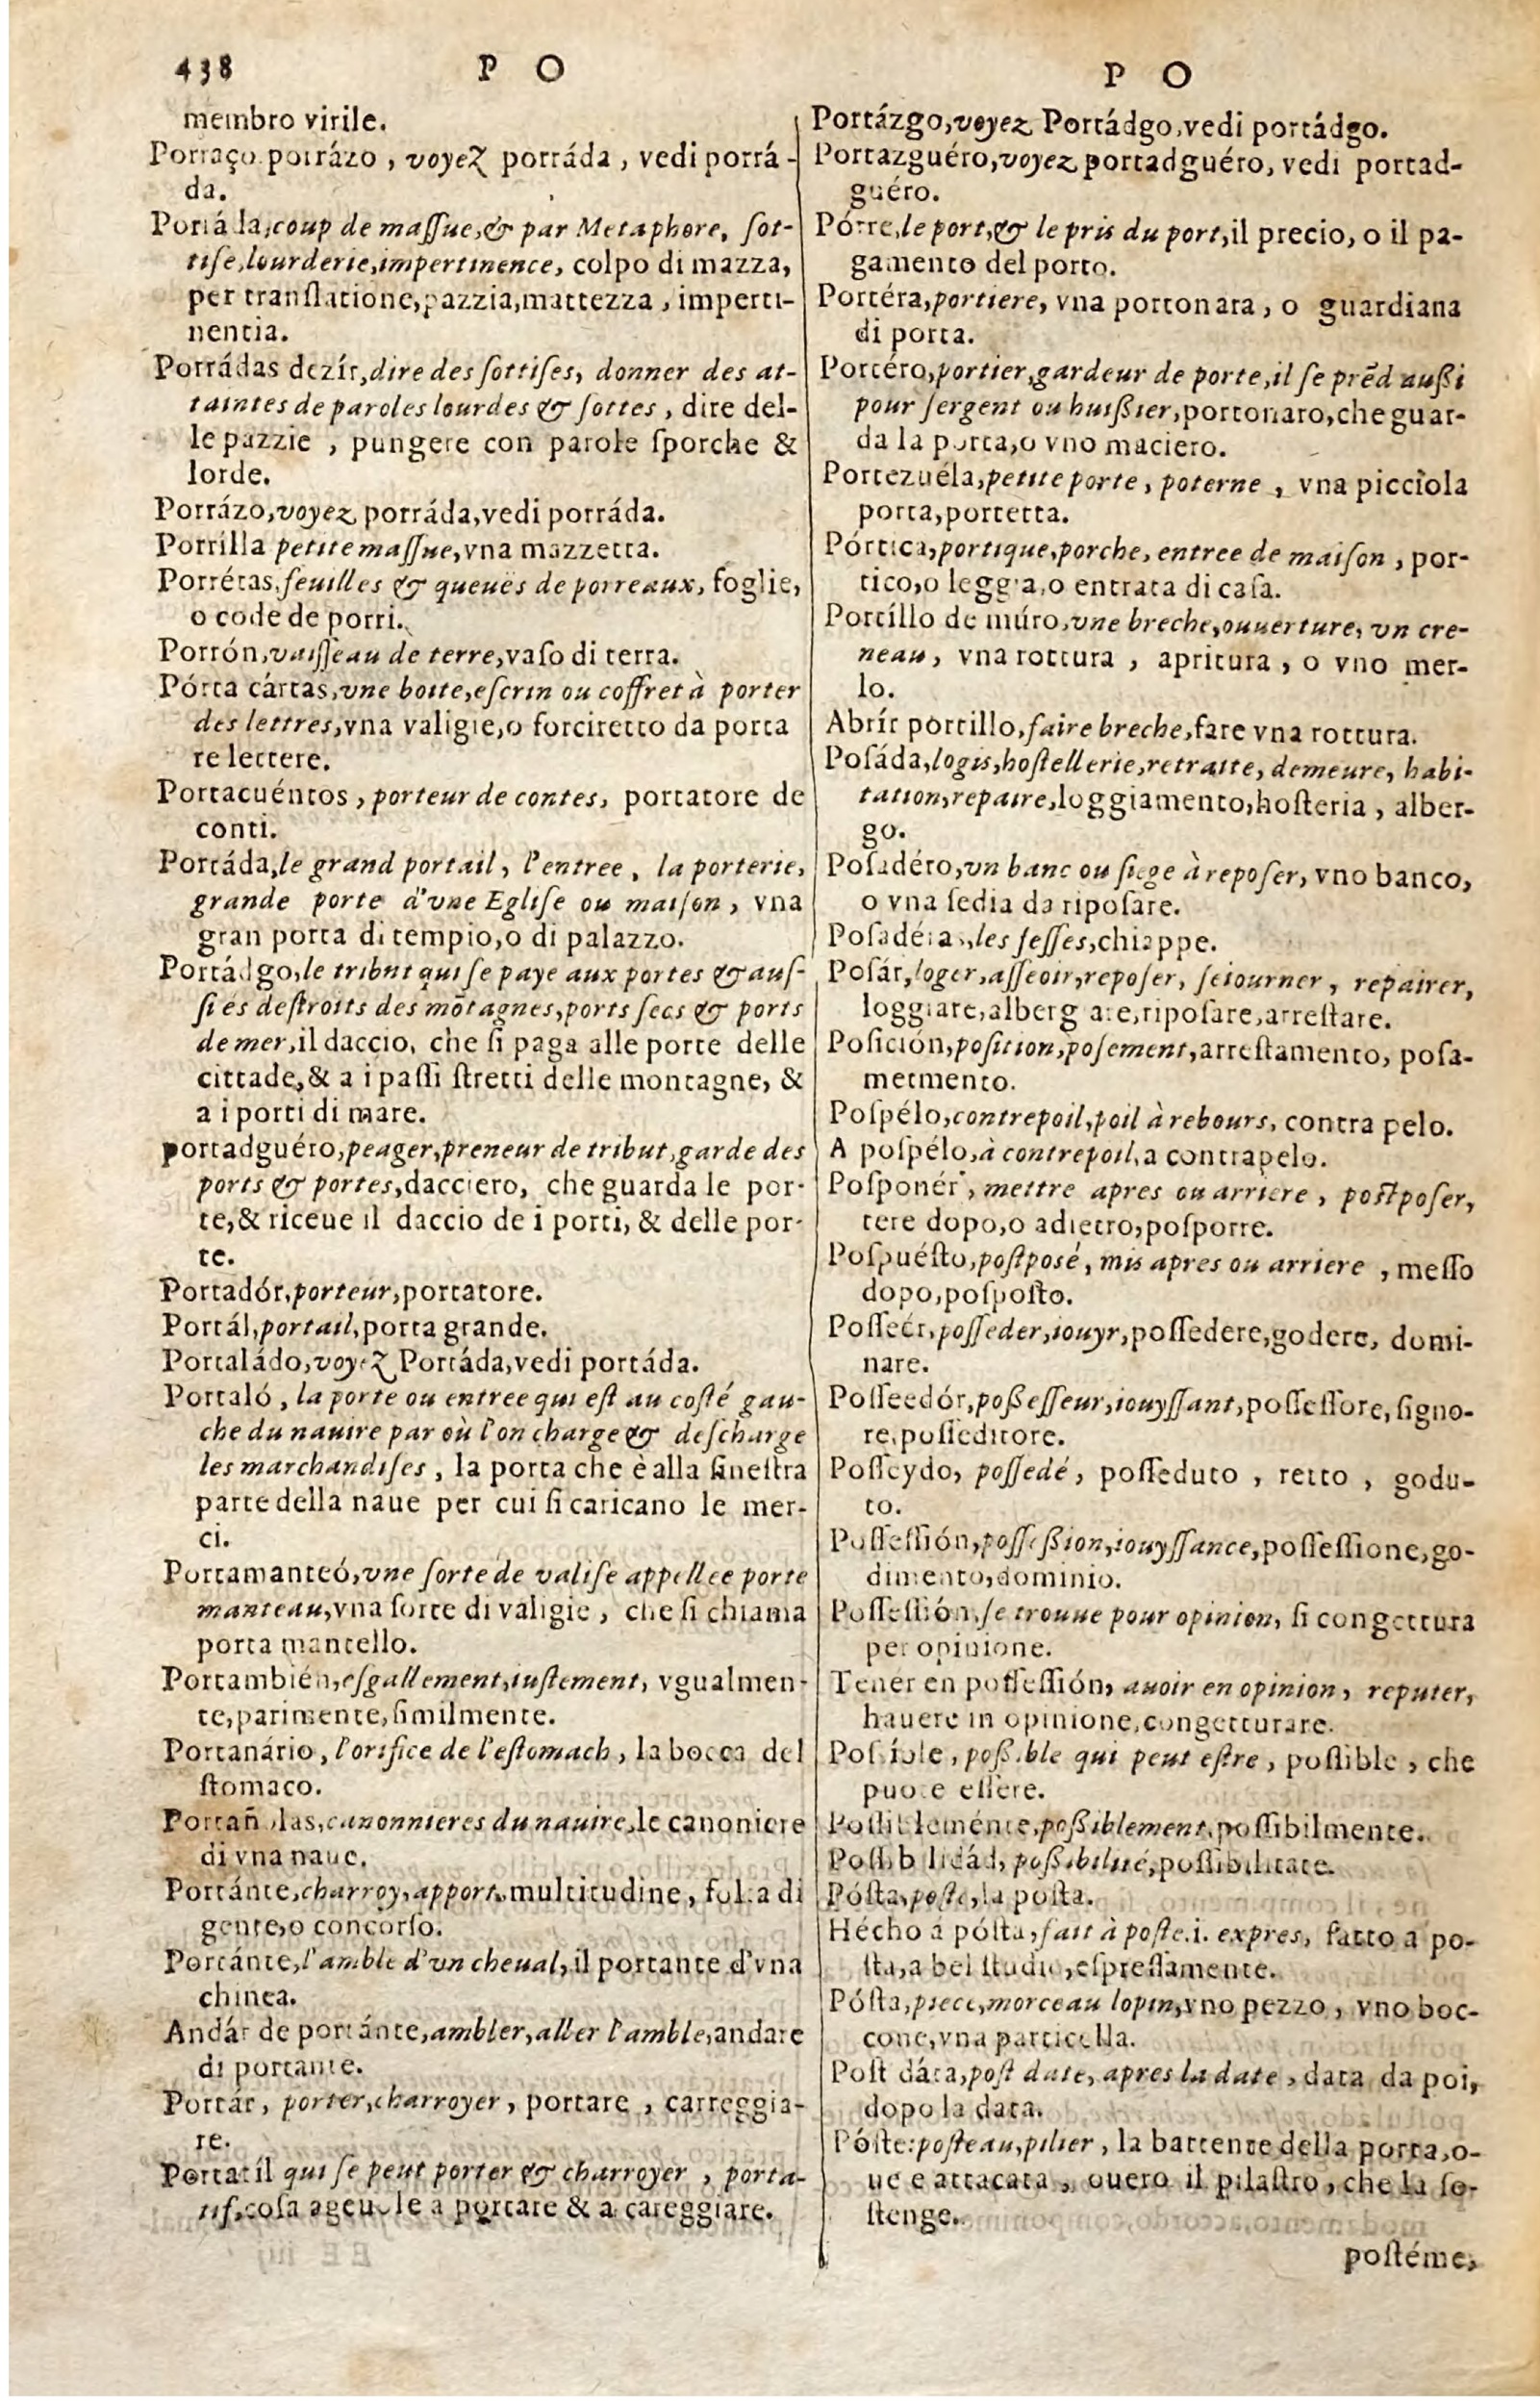 438 P O
membro virile.
Porraço porrázo, voyez porráda, vedi porrá-
da.
Porráda, coup de maſſue, & par Metaphore, ſot-
tiſe, lourderie, impertinence, colpo di mazza,
per tranſlatione, pazzia, mattezza, imperti-
nentia.
Porrádas dezír, dire des ſottiſes, donner des at-
taintes de paroles lourdes & ſottes, dire del-
le pazzie, pungere con parole ſporche &
lorde.
Porrázo, voyez porráda, vedi porráda.
Porrílla petite maſſue, vna mazzetta.
Porrétas, feuilles & queuës de porreaux, foglie,
o code de porri.
Porrón, vaiſſeau de terre, vaſo di terra.
Pórta cártas, vne boite, eſcrin ou coffret à porter
des lettres, vna valigie, o forciretto da porta
re lettere.
Portacuéntos, porteur de contes, portatore de
conti.
Portáda, le grand portail, l'entree, la porterie,
grande porte d'vne Egliſe ou maiſon, vna
gran porta di tempio, o di palazzo.
Portádgo, le tribut qui ſe paye aux portes & auſ-
ſi es deſtroits des mõtagnes, ports ſecs & ports
de mer, il daccio, che ſi paga alle porte delle
cittade, & a i paſſi ſtretti delle montagne, &
a i porti di mare.
portadguéro, peager, preneur de tribut, garde des
ports & portes, dacciero, che guarda le por-
te, & riceue il daccio de i porti, & delle por-
te.
Portadór, porteur, portatore.
Portál, portail, porta grande.
Portaládo, voyez Portáda, vedi portáda.
Portaló, la porte ou entree qui eſt au coſté gau-
che du nauire par où l'on charge & deſcharge
les marchandiſes, la porta che è alla ſineſtra
parte della naue per cui ſi caricano le mer-
ci.
Portamanteó, vne ſorte de valiſe appellee porte
manteau, vna ſorte di valigie, che ſi chiama
porta mantello.
Portambién, eſgallement, iuſtement, vgualmen-
te, parimente, ſimilmente.
Portanário, l'orifice de l'eſtomach, la bocca del
ſtomaco.
Portañolas, canonnieres du nauire, le canoniere
di vna naue.
Portánte, charroy, apport, multitudine, folla di
gente, o concorſo.
Portánte, l'amble d'vn cheual, il portante d'vna
chinea.
Andár de portánte, ambler, aller l'amble, andare
di portante.
Portár, porter, charroyer, portare, carreggia-
re.
Portatíl qui ſe peut porter & charroyer, porta-
tif, coſa ageuole a portare & a careggiare.
P O
Portázgo, voyez Portádgo, vedi portádgo.
Portazguéro, voyez portadguéro, vedi portad-
guéro.
Pórte, le port, & le pris du port, il precio, o il pa-
gamento del porto.
Portéra, portiere, vna portonara, o guardiana
di porta.
Portéro, portier, gardeur de porte, il ſe prẽd auſſi
pour ſergent ou huiſſier, portonaro, che guar-
da la porta, o vno maciero.
Portezuéla, petite porte, poterne, vna picciola
porta, portetta.
Pórtica, portique, porche, entree de maiſon, por-
tico, o loggia, o entrata di caſa.
Portíllo de múro, vne breche, ouuerture, vn cre-
neau, vna rottura, apritura, o vno mer-
lo.
Abrír portillo, faire breche, fare vna rottura.
Poſáda, logis, hoſtellerie, retraite, demeure, habi-
tation, repaire, loggiamento, hoſteria, alber-
go.
Poſadéro, vn banc ou ſiege à repoſer, vno banco,
o vna ſedia da ripoſare.
Poſadéras, les feſſes, chiappe.
Poſár, loger, aſſeoir, repoſer, ſeiourner, repairer,
loggiare, albergare, ripoſare, arreſtare.
Poſición, poſition, poſement, arreſtamento, poſa-
metmento.
Poſpélo, contrepoil, poil à rebours, contra pelo.
A poſpélo, à contrepoil, a contrapelo.
Poſponér, mettre apres ou arriere, poſtpoſer,
tere dopo, o adietro, poſporre.
Poſpuéſto, poſtposé, mis apres ou arriere, meſſo
dopo, poſpoſto.
Poſſeér, poſſeder, iouyr, poſſedere, godere, domi-
nare.
Poſſeedór, poſſeſſeur, iouyſſant, poſſeſſore, ſigno-
re, poſſeditore.
Poſſeydo, poſſedé, poſſeduto, retto, godu-
to.
Poſſeſſión, poſſeſſion, iouyſſance, poſſeſſione, go-
dimento, dominio.
Poſſeſſión, ſe trouue pour opinion, ſi congettura
per opinione.
Tener en poſſeſſión, auoir en opinion, reputer,
hauere in opinione, congetturare.
Poſſíble, poſſible qui peut eſtre, poſſible, che
puote eſſere.
Poſſiblemente, poſſiblement, poſſibilmente.
Poſſibilidád, poſſibilité, poſſibilitate.
Póſta, poſte, la poſta.
Hécho a póſta, fait à poſte. i. expres, fatto a po-
ſta, a bel ſtudio, eſpreſſamente.
Póſta, piece, morceau lopin, vno pezzo, vno boc-
cone, vna particella.
Poſt dáta, poſt date, apres la date, data da poi,
dopo la data.
Póſte: poſteau, pilier, la battente della porta, o-
ue e attacata, ouero il pilaſtro, che la ſo-
ſtenge.
poſtéme,